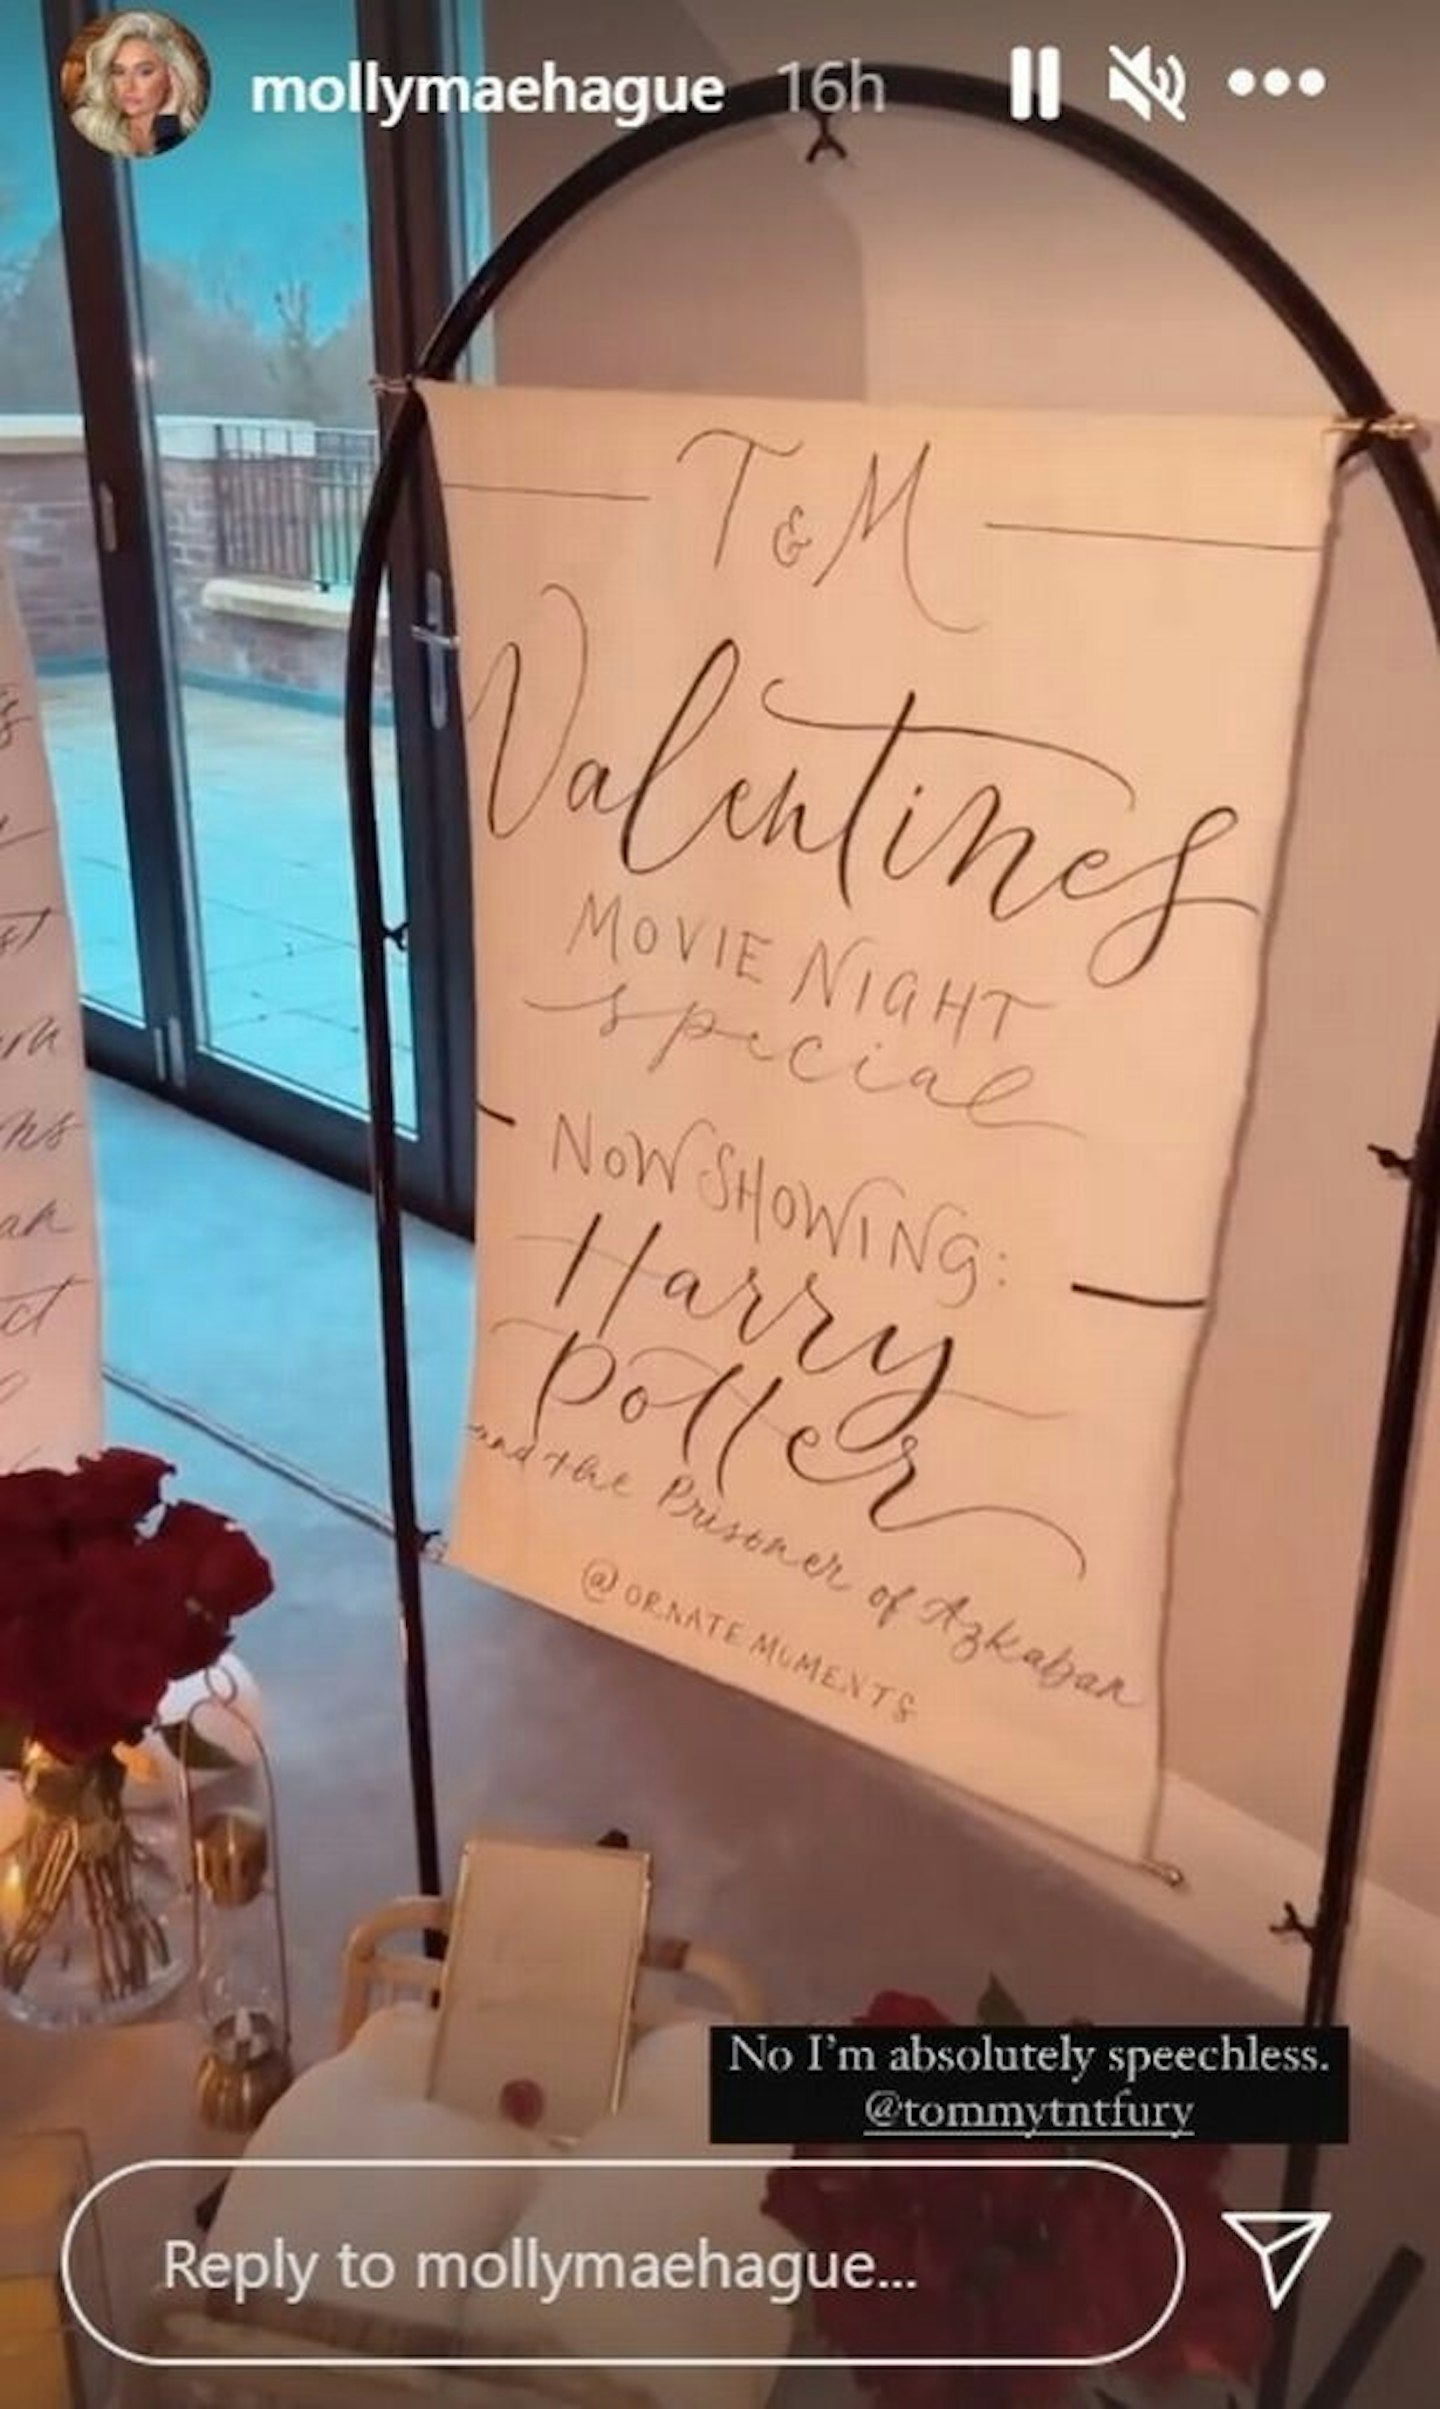 mollymaehague 16h
T & M
Valentines
MOVIE NIGHT
special
NOW SHOWING:
Harry
Potter
and the Prisoner of Azkaban
@ORNATE MOMENTS
No I'm absolutely speechless.
@tommytntfury
Reply to mollymaehague...